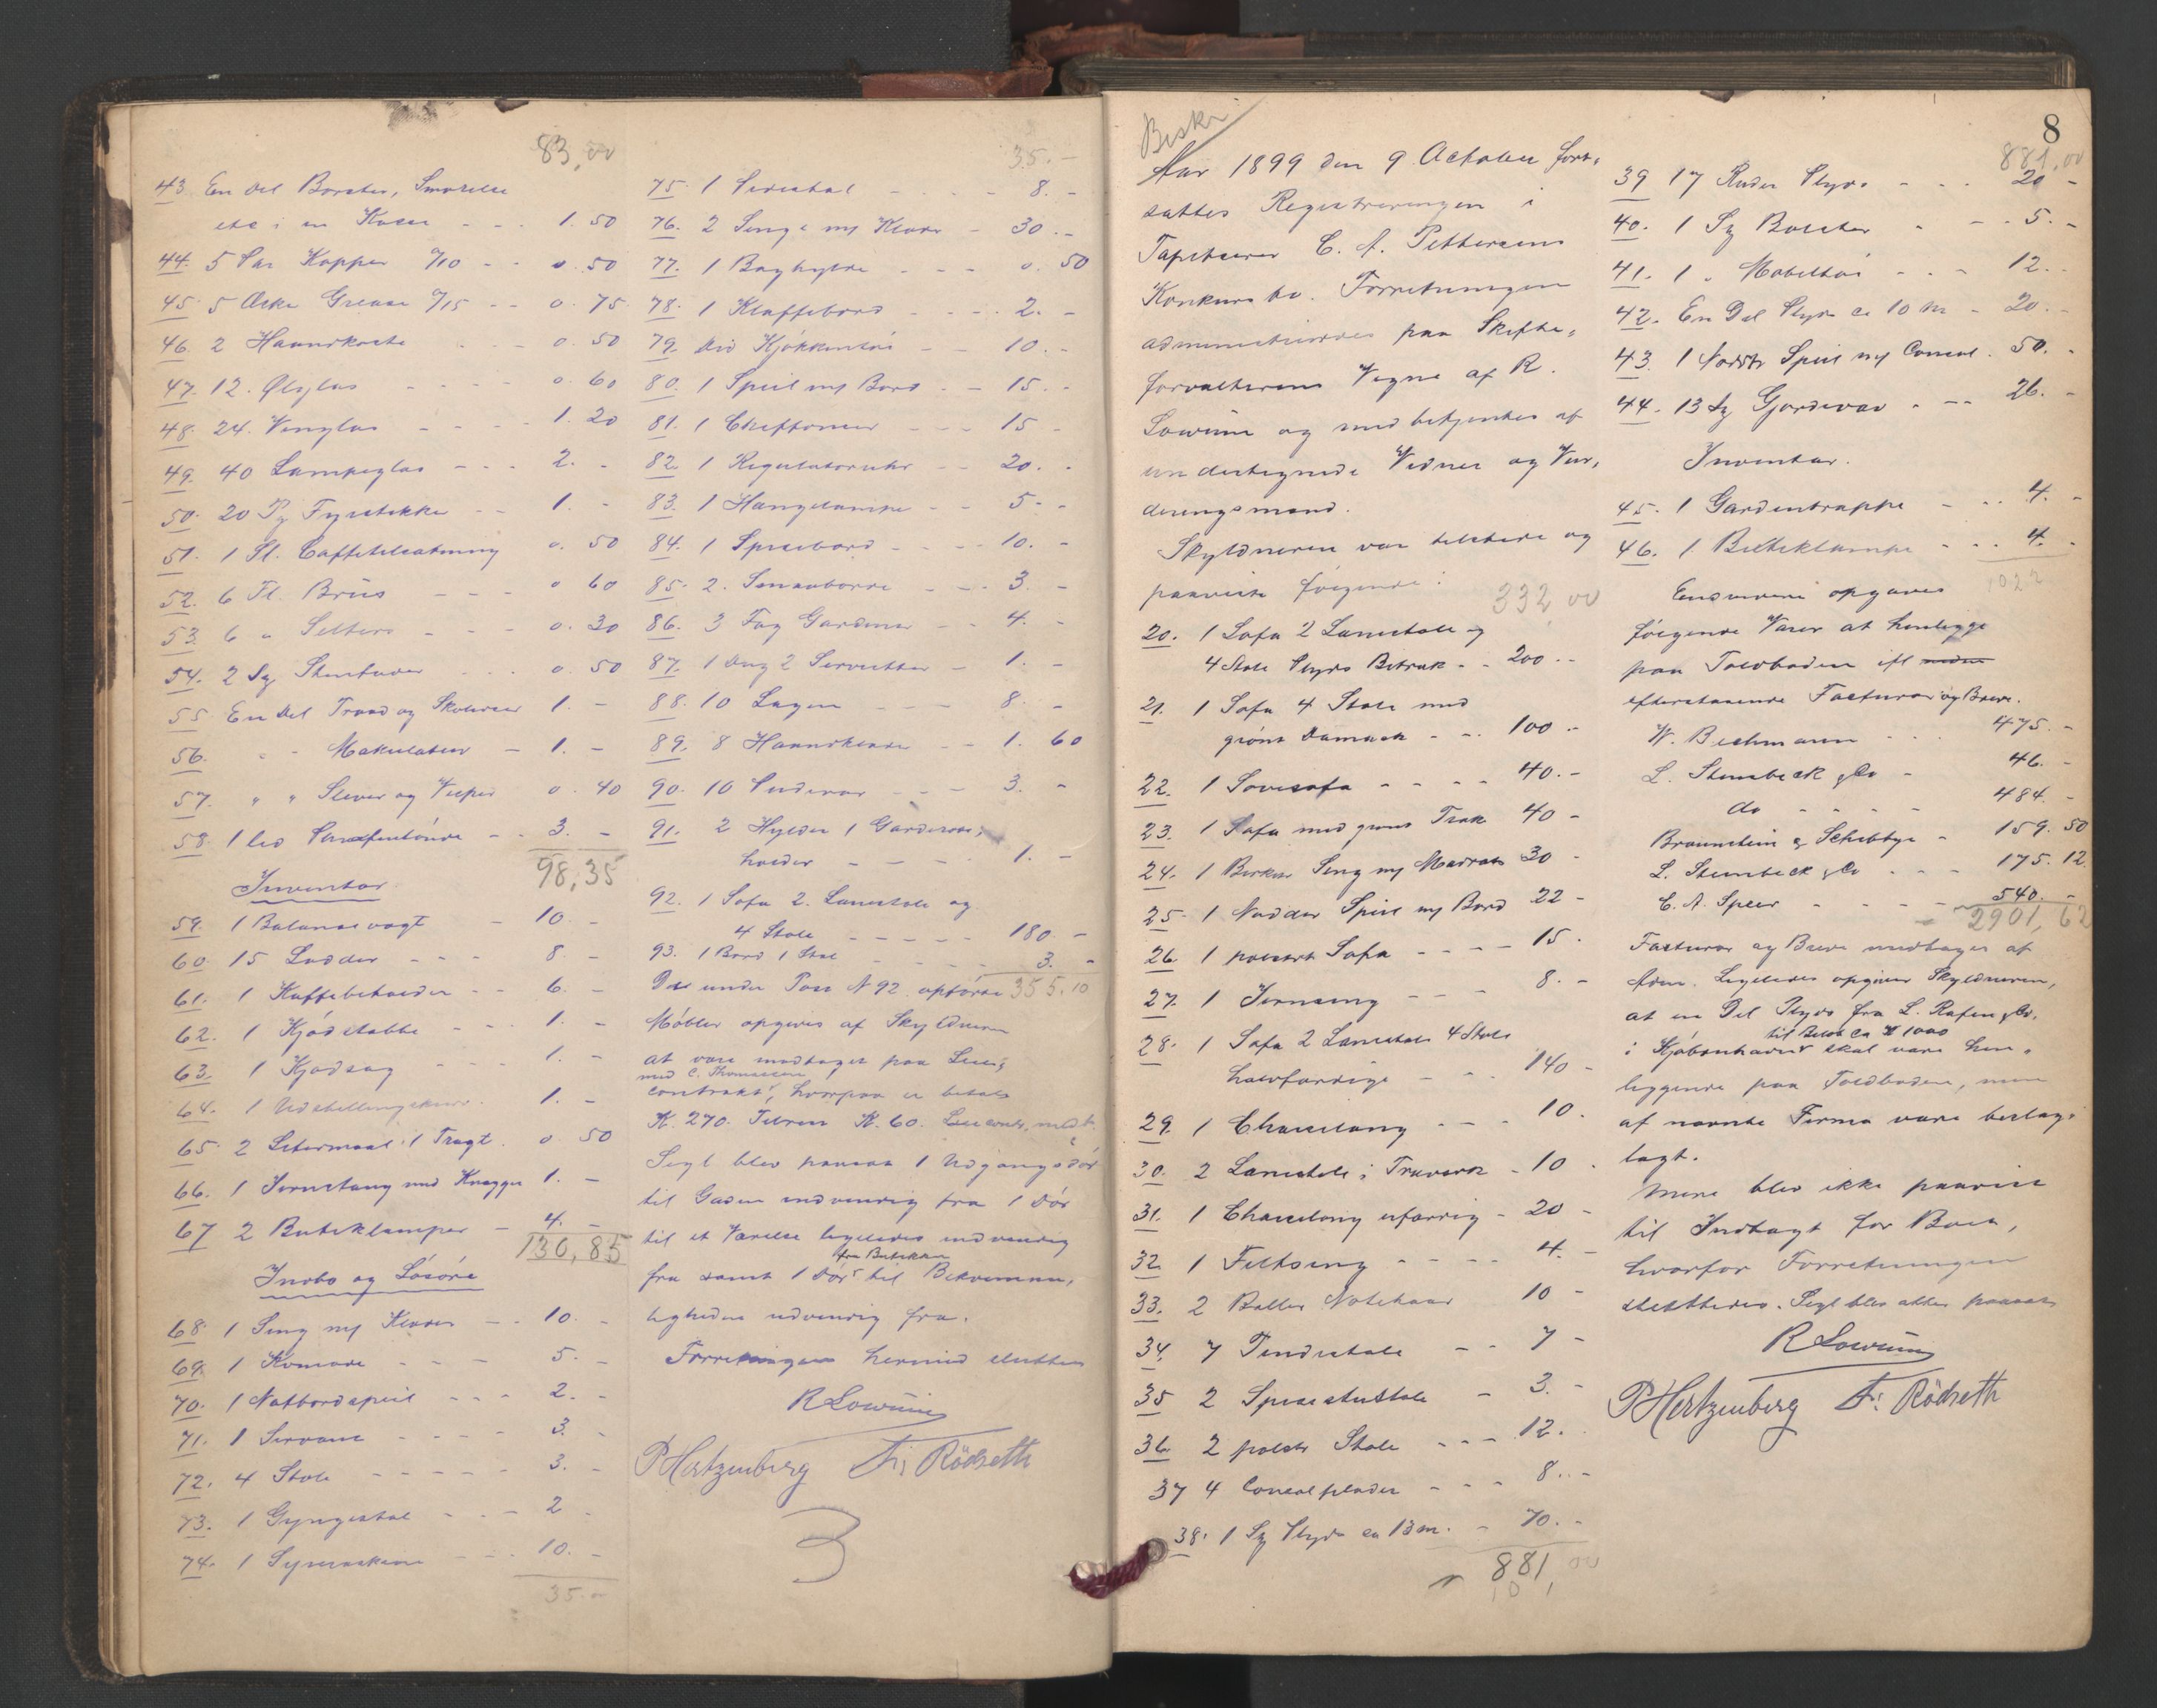 83,00
43. En Del Børster, Smørelse
etc i en Kasse - - - 1. 50
44. 5 Par Kopper a/10 - - 0. 50
45. 5 Æske Grease a/15 - - 0. 75
46. 2 Haandkoste - 0. 50
47. 12. Ølglas - - - - 0. 60
48. 24. Vinglas - - - - 1. 20
49. 40 Lampeglas - - - 2. -
50. 20 Pg Fyrstikker - - 1. -
51. 1 Fl. Caffetilsætning 0. 50
52. 6 Fl. Brus - - - 0. 60
53. 6 " Selters - - - 0. 30
54. 2 Stentøver 0. 50
55. En Del Traad og Skolisser 1. -
56. " - Makulatur - 1. -
57. " " Slever og Visper 0. 40
58. 1 led Parafintønde - - 3. -
98,35
Inventar
59. 1 Balancevægt - 10. -
60. 15 Lodder - - - 8. -
61. 1 Kaffebeholder - - 6. -
62. 1 Kjødstabbe - - - 1. -
63. 1 Kjødsag - - - 1. -
64. 1 Udstillingskurv. 1. -
65. 2 Litermaal 1 Tragt. 0. 50
66. 1 Jernstang med Knagger 1. -
67 2 Butiklamper - 4. -
130,85
Indbo og Løsøre
68. 1 Seng m/ Klæder - - 10. -
69. 1 Komode - - - 5. -
70. 1 Natbordspeil - - - 2. -
71. 1 Servant - - - - 3. -
72. 4 Stole - - - - - 3. -
73. 1 Gyngestol - - - 2 -
74. 1 Symaskine - - - 10. -
35.00
35.-
75. 1 Pidestal - - - - 8. -
76. 2 Senge m/ Klæder - 30. -
77. 1 Baghylde - - - 0. 50
78. 1 Klaffebord - - - 2. -
79. Div Kjøkkentøi - - 10. -
80. 1 Speil m/ Bord - - 15. -
81. 1 Chiffonier - - - 15 -
82. 1 Regulatoruhr - - 20. -
83. 1 Hængelampe - - 5 - -
84. 1 Spisebord - - - 10. -
85. 2. Smaaborde - - - 3. -
86. 3 Fag Gardiner - - 4. -
87. 1 Dug 2 Servietter - 1. -
88. 10 Lagen - - - 8. -
89. 8 Haandklæder - - 1. 60
90. 10 Pudevar - - - 3. -
91. 2 Hylder 1 Garderobe-
holder - - - - 1. -
92. 1 Sofa 2. Lænestole og
4 Stole - - - - - 180 -
93. 1 Bord 1 Stol - - - - - 3. -
De under Post N 92 opførte 355.10
Møbler opgives af Skyldneren
at være modtaget paa Leie-
med C. Thomassen
contrakt, hvorpaa er betalt
K. 270. Tilrest K. 60. Leiecontr. medt.
Segl blev paasat 1 Udgangsdør
til Gaden indvendig fra 1 Dør
til et Værelse ligeledes indvendig
fra Butikken
fra samt 1 Dør til Bekvemme-
ligheden udvendig fra.
Forretningen hermed sluttet
R Lowum
P Hertzenberg Fr: Rödseth
3
8
Beskr
Aar 1899 den 9 October fort-
sattes Registreringen i
Tapetserer C. A. Pettersens
Konkursbo. Forretningen
administreredes paa Skifte-
forvalterens Vegne af R.
Lowum og med betjentes af
undertegnede Vidner og Vur-
deringsmænd.
Skyldneren var tilstede og
paaviste følgende: 332,00
20. 1 Sofa 2 Lænestole og
4 Stole Plyds Betræk - - 200 - -
21. 1 Sofa 4 Stole med
grønt Damask - - - 100 - -
22. 1 Sovesofa - - - - 40. -
23. 1 Sofa med grønt Træk 40 -
24. 1 Birkes Seng m/ Madrats 30 -
25. 1 Nødder Speil m/ Bord 22 -
26. 1 polstret Sofa - - - - 15.
27. 1 Jernseng - - - 8. -
28. 1 Sofa 2 Lænestole 4 Stole
halvfærdige - - - 140 -
29. 1 Chaiselong - - - 10.
30. 2 Lænestole i Træværk - 10 -
31. 1 Chaiselong ufærdig - 20 -
32. 1 Feltseng - - - - 4. -
33. 2 Baller Nøtehaar 10 -
34. 7 Pindestole - - 7 -
35 2 Spisestustole - 3. -
36. 2 polstr Stole - - - 12. -
37 4 Consolplader - - - 8. -
38. 1 Plyds ca 13 m. - 70. -
881,00
881,00
39 17 Ruder Plyds - - - 20 -
40. 1 Bolster - - - 5. -
41. 1 " Møbeltøi - - - 12. -
42. En Del Plyds ca 10 m - 20. -
43. 1 Speil m/ Consol. 50. -
44. 13 Gjordevæv - - - 26. -
Inventar.
45. 1 Gardintrappe - - - 4. -
46. 1 Butiklampe - - - 4. -
1022
Endvidere opgaves
følgende Varer at henligge
paa Toldboden ifl
efterstaaende Facturaer og Breve.
W. Bechmann - - - 475. -
L. Steinbeck & Co - 46. -
do - - - - 484. -
Braunstein & Schebbye - 159. 50
L. Steinbeck & Co - - - 175. 12
C. A. Speer - - - - 540. -
2901,62
Facturaer og Breve medtages af
Adm. Ligeledes opgiver Skyldneren,
at en Del Plyds fra L. Rafen & Co.
til Beløb ca K 1000
i Kjøbenhavn skal være hen-
liggende paa Toldboden, men
af nævnte Firma være beslag-
lagt.
Mere blev ikke paavist
til Indtægt for Boet,
hvorfor Forretningen
sluttedes. Segl blev atter paasat
R Lowum
P Hertzenberg Fr: Rödseth